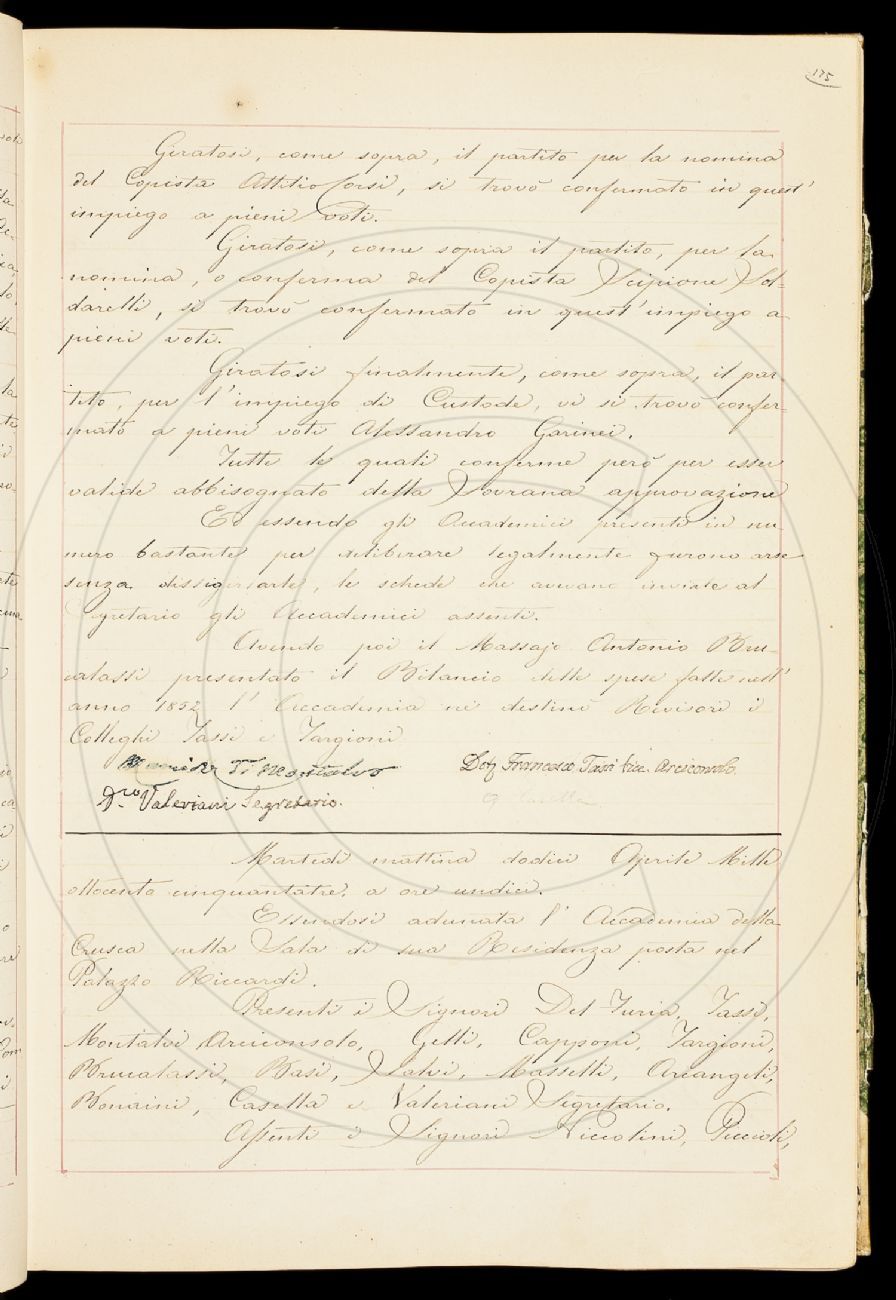 175
Giratosi, come sopra, il partito per la nomina
del Copista Attilio Corsi, si trovò confermato in quest'
impiego a pieni voti.
Giratosi, come sopra il partito, per la
nomina, o conferma del Copista Scipione Sol=
darelli, si trovò confermato in quest'impiego a
pieni voti.
Giratosi finalmente, come sopra, il par
tito, per l'impiego di Custode, vi si trovò confer=
mato a pieni voti Alessandro Garinei.
Tutte le quali conferme però per esser
valide abbisognato della Sovrana approvazione
Ed essendo gli Accademici presenti in nu
mero bastante per deliberare legalmente furono arse
senza dissigillarle, le schede che avevano inviate al
Segretario gli Accademici assenti.
Avendo poi il Massajo Antonio Bru-
calassi presentato il Bilancio delle spese fatte nell'
anno 1852 l'Accademia ne destinò Revisori i
Colleghi Tassi e Targioni
Dott Francesco Tassi Arciconsolo
Dro Valeriani Segretario.
Martedì mattina dodici Aprile Mille
ottocento cinquantatre, a ore undici.
Essendosi adunata l'Accademia della
Crusca nella Sala di sua Residenza posta nel
Palazzo Riccardi.
Presenti i Signori Del Furia, Tassi,
Montalvi Arciconsolo, Gelli, Capponi, Targioni,
Brucalassi, Basi, Salvi, Masselli, Arcangeli,
Bonaini, Casella e Valeriani Segretario.
Assenti i Signori Niccolini, Piccioli,